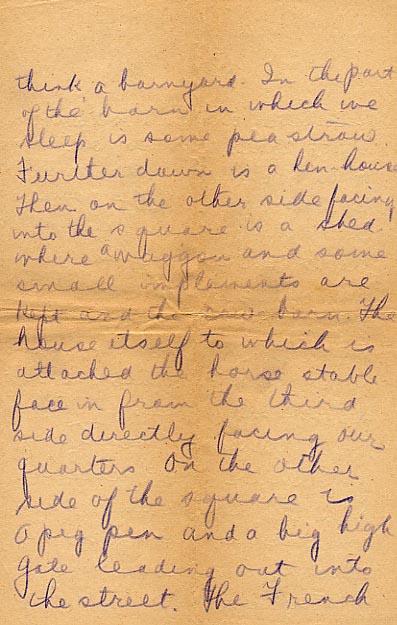 think a barnyard. In the part
of the barn in which we
sleep is some pea straw.
Further down is a hen-house
Then on the other side facing
into the square is a shed
where a waggon and some
small implements are
kept and the cow barn. The
house itself to which is
attached the horse stable
face in from the third
side directly facing our
quarters On the other
side of the square is
a pig pen and a big high
gate leading out into
the street. The French